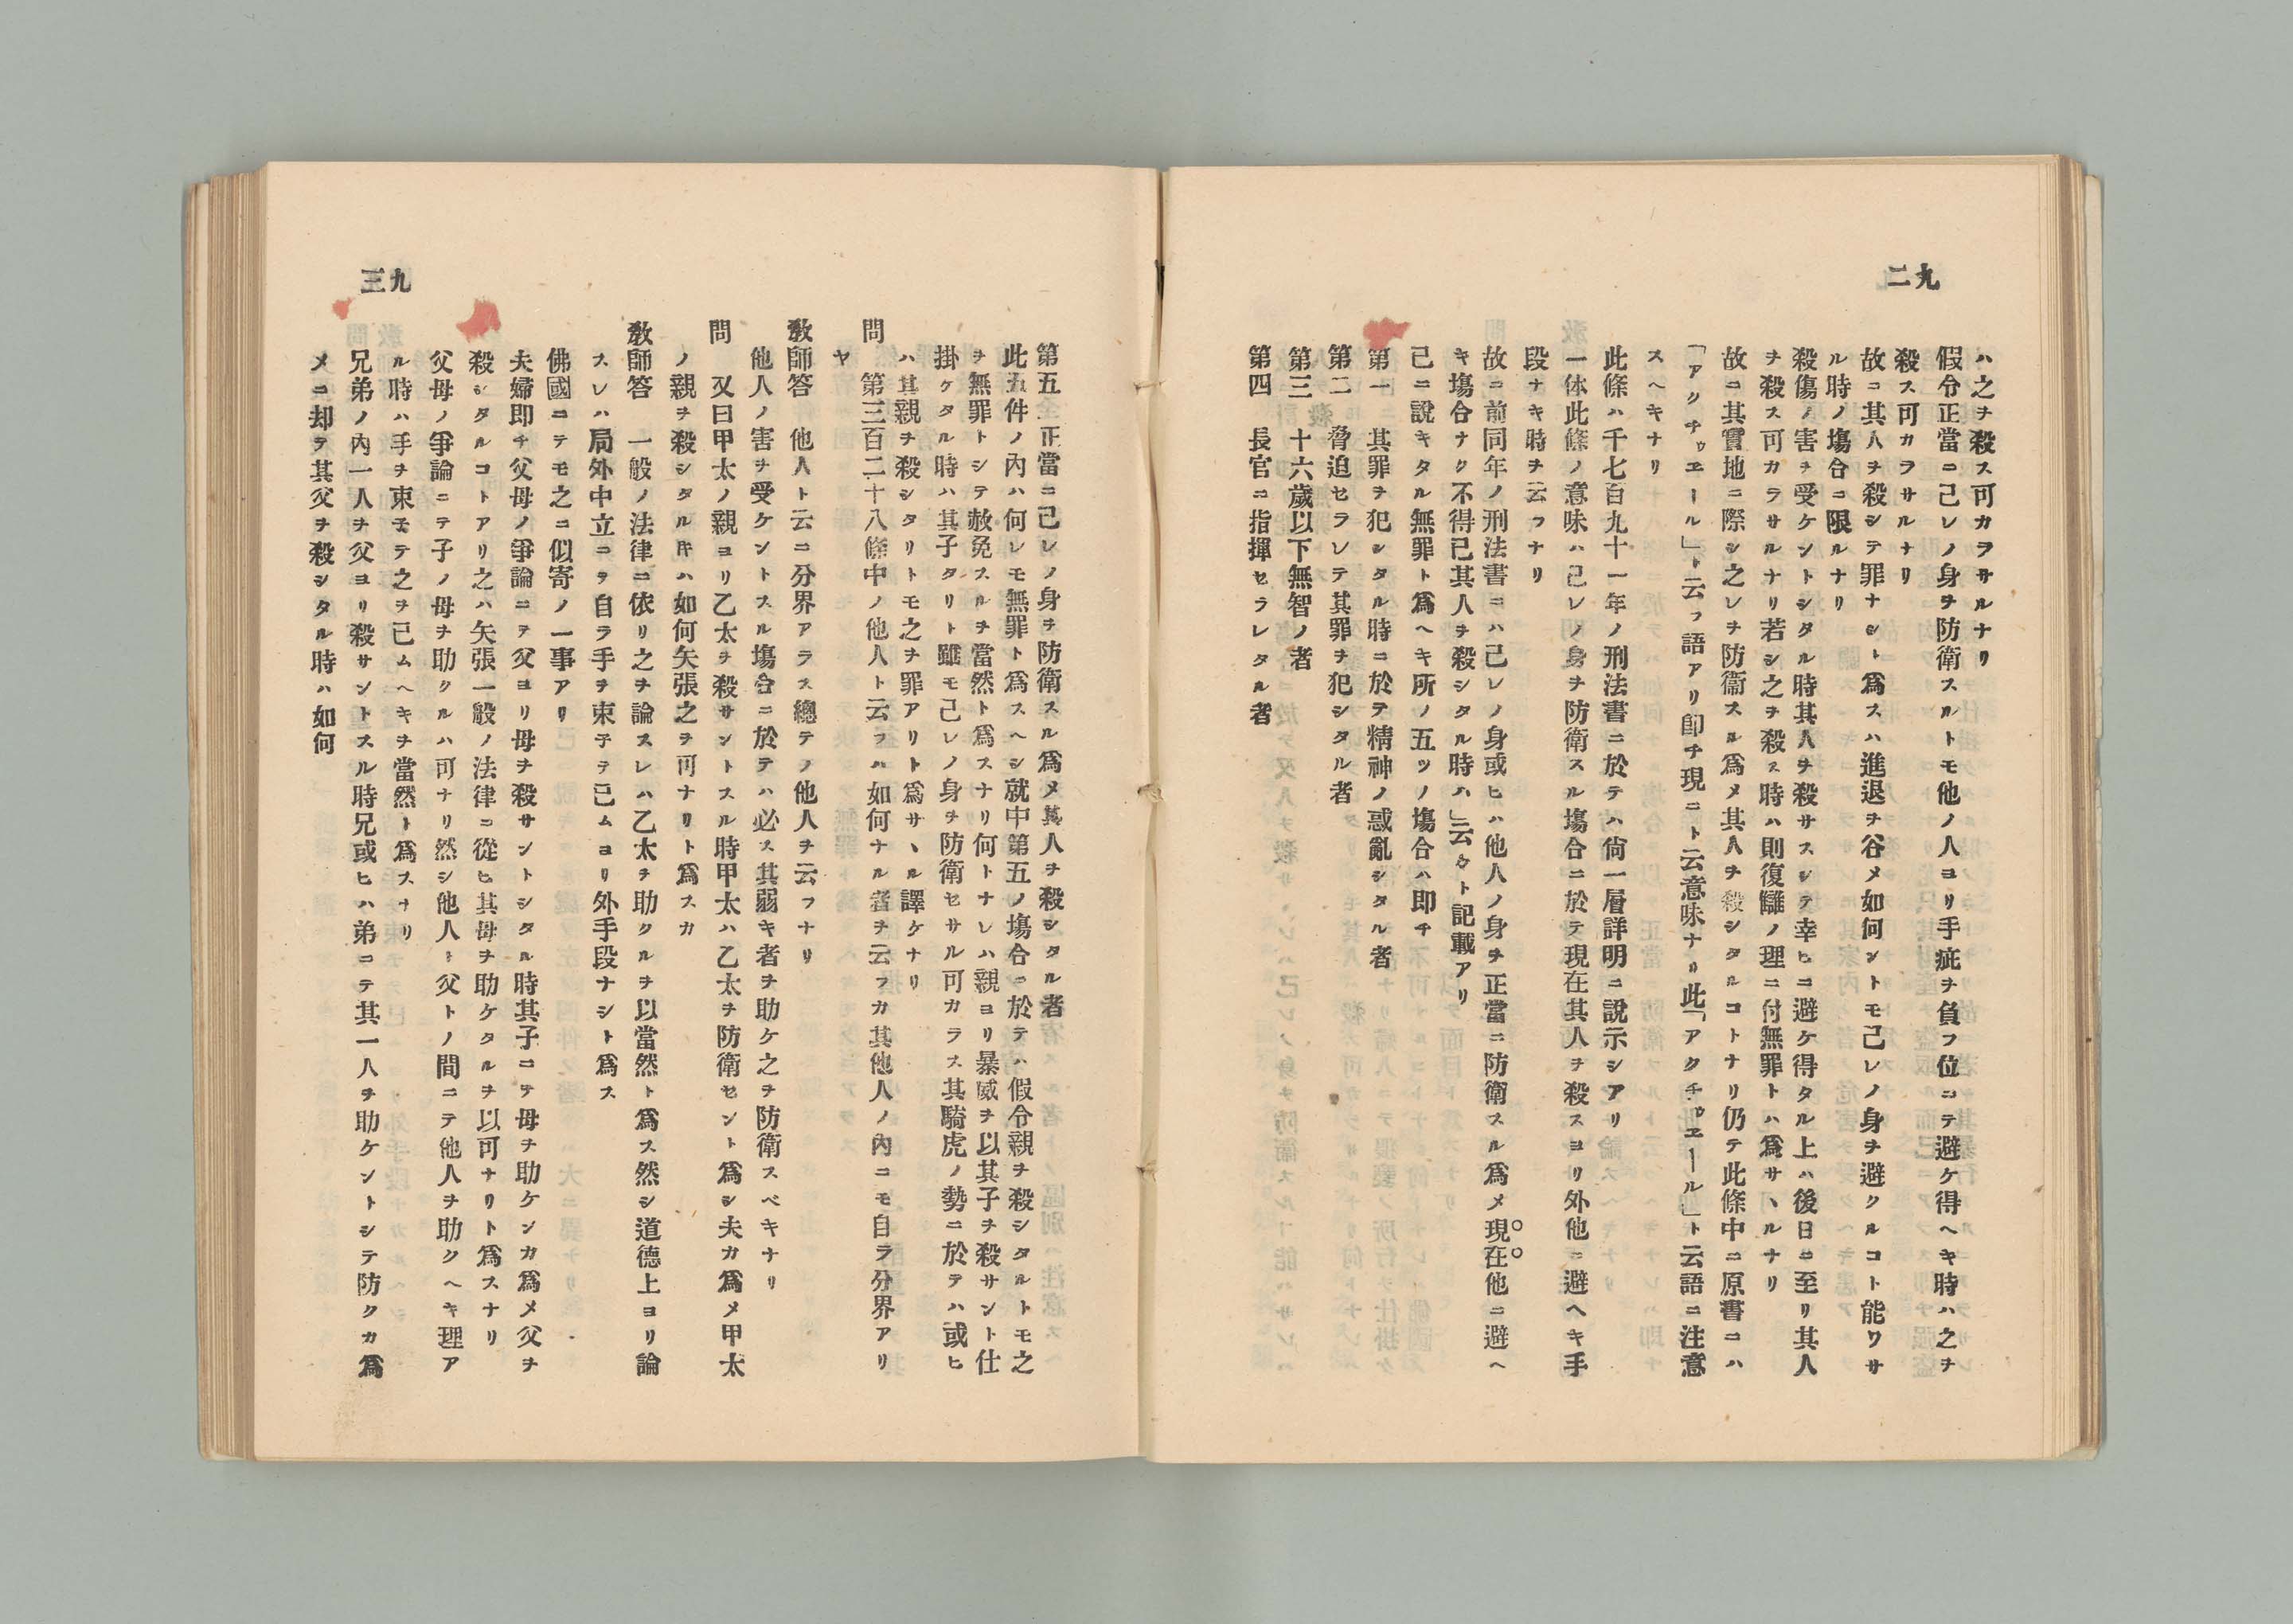 九二
ハ之ヲ殺ス可カラサルナリ
假令正當ニ己レノ身ヲ防衛スルトモ他ノ人ヨリ手疵ヲ負フ位ニテ避ケ得ヘキ時ハ之ヲ
殺ス可カラサルナリ
故ニ其人ヲ殺シテ罪ナシト爲スハ進退ヲ谷メ如何ントモ己レノ身ヲ避クルコト能ワサ
ル時ノ塲合ニ限ルナリ
殺傷ノ害ヲ受ケントシタル時其人ヲ殺サスシテ幸ヒニ避ケ得タル上ハ後日ニ至リ其人
ヲ殺ス可カラサルナリ若シ之ヲ殺ス時ハ則復讎ノ理ニ付無罪トハ爲サヽルナリ
故ニ其實地ニ際シ之レヲ防衞スル爲メ其人ヲ殺シタルコトナリ仍テ此條中ニ原書ニハ
「アクチゥエール」ト云フ語アリ卽チ現ニト云意味ナリ此「アクチゥエール」ト云語ニ注意
スヘキナリ
此條ハ千七百九十一年ノ刑法書ニ於テハ尙一層詳明ニ說示シアリ
一体此條ノ意味ハ己レノ身ヲ防衛スル塲合ニ於テ現在其人ヲ殺スヨリ外他ニ避ヘキ手
段ナキ時ヲ云フナリ
故ニ前同年ノ刑法書ニハ己レノ身或ヒハ他人ノ身ヲ正當ニ防衛スル爲メ現在他ニ避ヘ
キ塲合ナク不得已其人ヲ殺シタル時ハ」云々ト記載アリ
已ニ說キタル無罪ト爲ヘキ所ノ五ツノ塲合ハ卽チ
第一　其罪ヲ犯シタル時ニ於テ精神ノ惑亂シタル者
第二　脅迫セラレテ其罪ヲ犯シタル者
第三　十六歲以下無智ノ者
第四　長官ニ指揮セラレタル者
九三
第五　正當ニ己レノ身ヲ防衛スル爲メ其人ヲ殺シタル者
此五件ノ內ハ何レモ無罪ト爲スヘシ就中第五ノ塲合ニ於テハ假令親ヲ殺シタルトモ之
ヲ無罪トシテ赦免スルヲ當然ト爲スナリ何トナレハ親ヨリ暴威ヲ以其子ヲ殺サント仕
掛ケタル時ハ其子タリト雖モ己レノ身ヲ防衛セサル可カラス其騎虎ノ勢ニ於テハ或ヒ
ハ其親ヲ殺シタリトモ之ヲ罪アリト爲サヽル譯ケナリ
問　第三百二十八條中ノ他人ト云フハ如何ナル者ヲ云フカ其他人ノ內ニモ自ラ分界アリ
ヤ
敎師答　他人ト云ニ分界アラス總テノ他人ヲ云フナリ
他人ノ害ヲ受ケントスル塲合ニ於テハ必ス其弱キ者ヲ助ケ之ヲ防衛スベキナリ
問　又曰甲太ノ親ヨリ乙太ヲ殺サントスル時甲太ハ乙太ヲ防衛セント爲シ夫カ爲メ甲太
ノ親ヲ殺シタル𪜈ハ如何矢張之ヲ可ナリト爲スカ
敎師答　一般ノ法律ニ依リ之ヲ論スレハ乙太ヲ助クルヲ以當然ト爲ス然シ道德上ヨリ論
スレハ局外中立ニヲ自ラ手ヲ束子テ已ムヨリ外手段ナシト爲ス
佛國ニテモ之ニ似寄ノ一事アリ
夫婦卽チ父母ノ爭論ニテ父ヨリ母ヲ殺サントシタル時其子ニテ母ヲ助ケンカ爲メ父ヲ
殺シタルコトアリ之ハ矢張一般ノ法律ニ從ヒ其母ヲ助ケタルヲ以可ナリト爲スナリ
父母ノ爭論ニテ子ノ母ヲ助クルハ可ナリ然シ他人ト父トノ間ニテ他人ヲ助クヘキ理ア
ル時ハ手ヲ束子テ之ヲ已ムヘキヲ當然ト爲スナリ
兄弟ノ內一人ヲ父ヨリ殺サントスル時兄或ヒハ弟ニテ其一人ヲ助ケントシテ防クカ爲
メニ却テ其父ヲ殺シタル時ハ如何